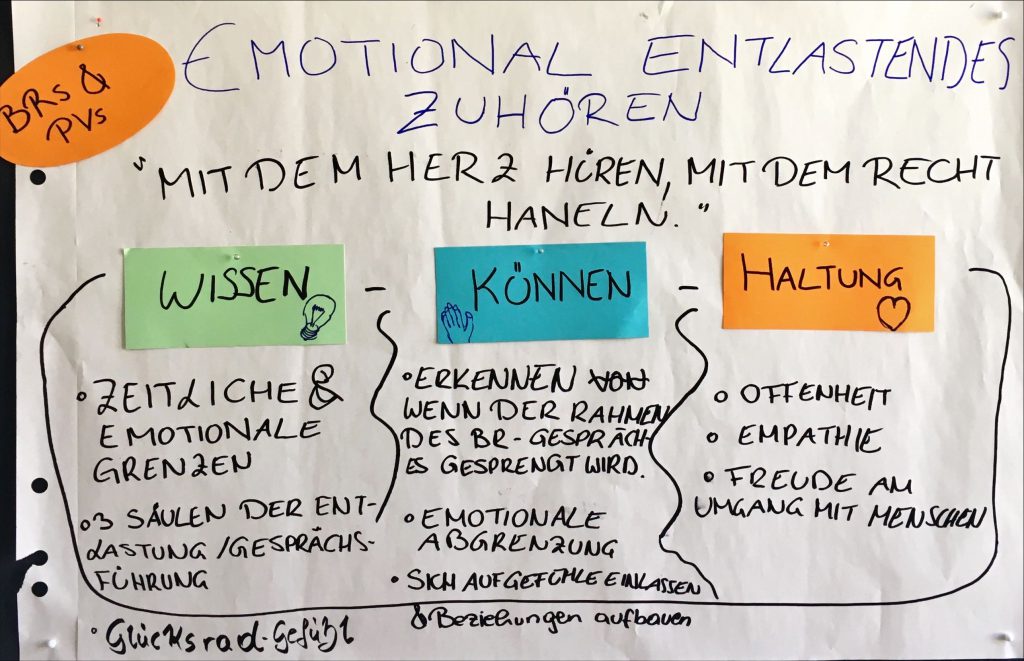 BRs &
PVs
EMOTIONAL ENTLASTENDES
ZUHÖREN
"MIT DEM HERZ HÖREN, MIT DEM RECHT
HANELN."
WISSEN - KÖNNEN - HALTUNG
• ZEITLICHE &
EMOTIONALE
GRENZEN
• 3 SÄULEN DER ENT-
LASTUNG/GESPRÄCHS-
FÜHRUNG
• Glücksrad-Gefühl
• ERKENNEN VON
WENN DER RAHMEN
DES BR-GESPRÄCH-
ES GESPRENGT WIRD.
• EMOTIONALE
ABGRENZUNG
• SICH AUF GEFÜHLE EINLASSEN
& Beziehungen aufbauen
• OFFENHEIT
• EMPATHIE
• FREUDE AM
UMGANG MIT MENSCHEN